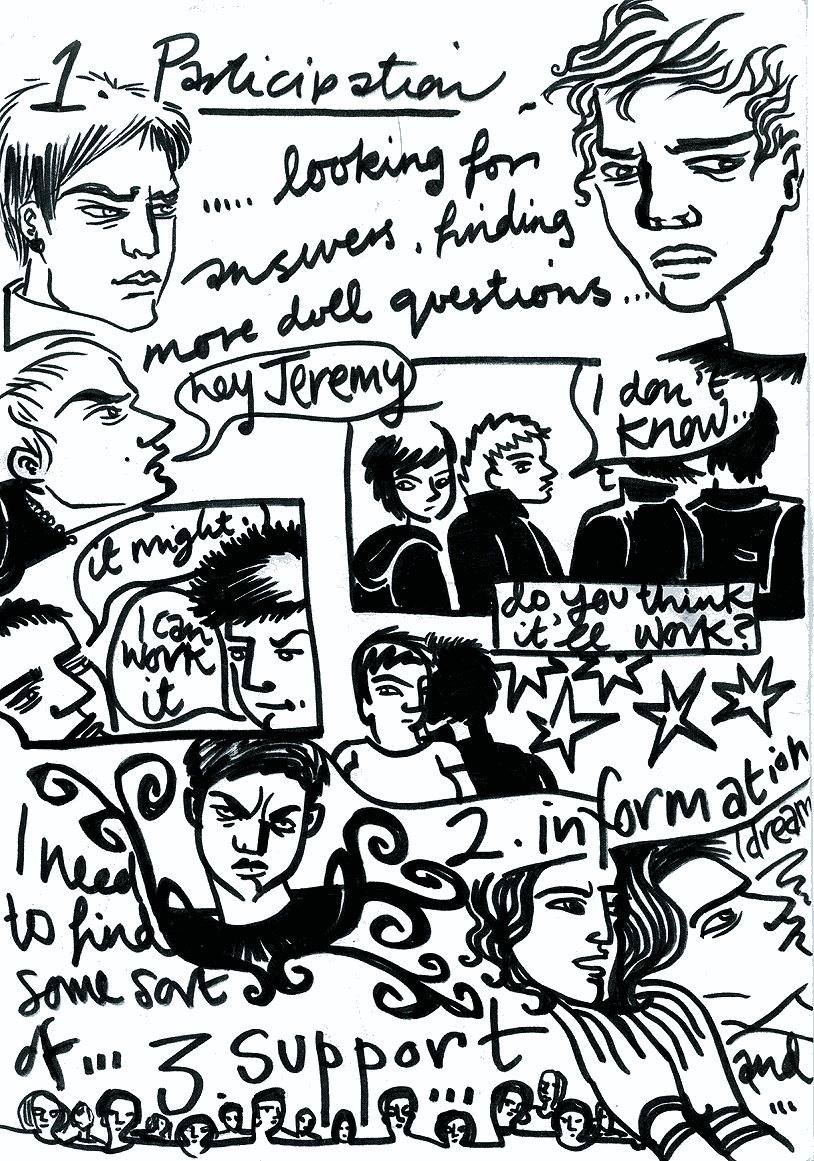 1. Participation
..... looking for
answers, finding
more dull questions...
hey Jeremy
I don't
know...
it might.
I can
work
it
do you think
it'll work?
2. information
I dream
I need
to find
some sort
of...
3. support
...
and
...